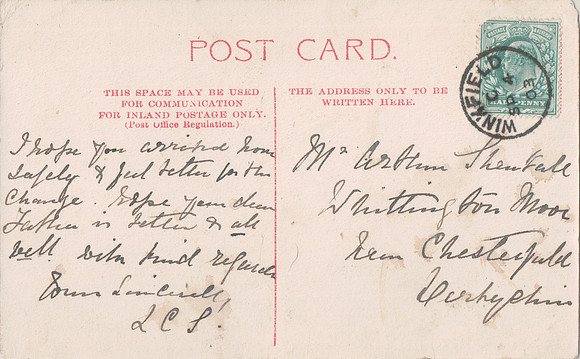 POST CARD.
THIS SPACE MAY BE USED
FOR COMMUNICATION
FOR INLAND POSTAGE ONLY.
(Post Office Regulation.)
I hope you arrived home
safely & feel better for the
change. Hope your dear
Father is better & all
well with kind regards
Yours Sincerely,
L C S.
THE ADDRESS ONLY TO BE
WRITTEN HERE.
Mr Arthur
Whittington Moor
Near Chesterfield
Derbyshire
POSTAGE & REVENUE
HALF PENNY
WINKFIELD
03